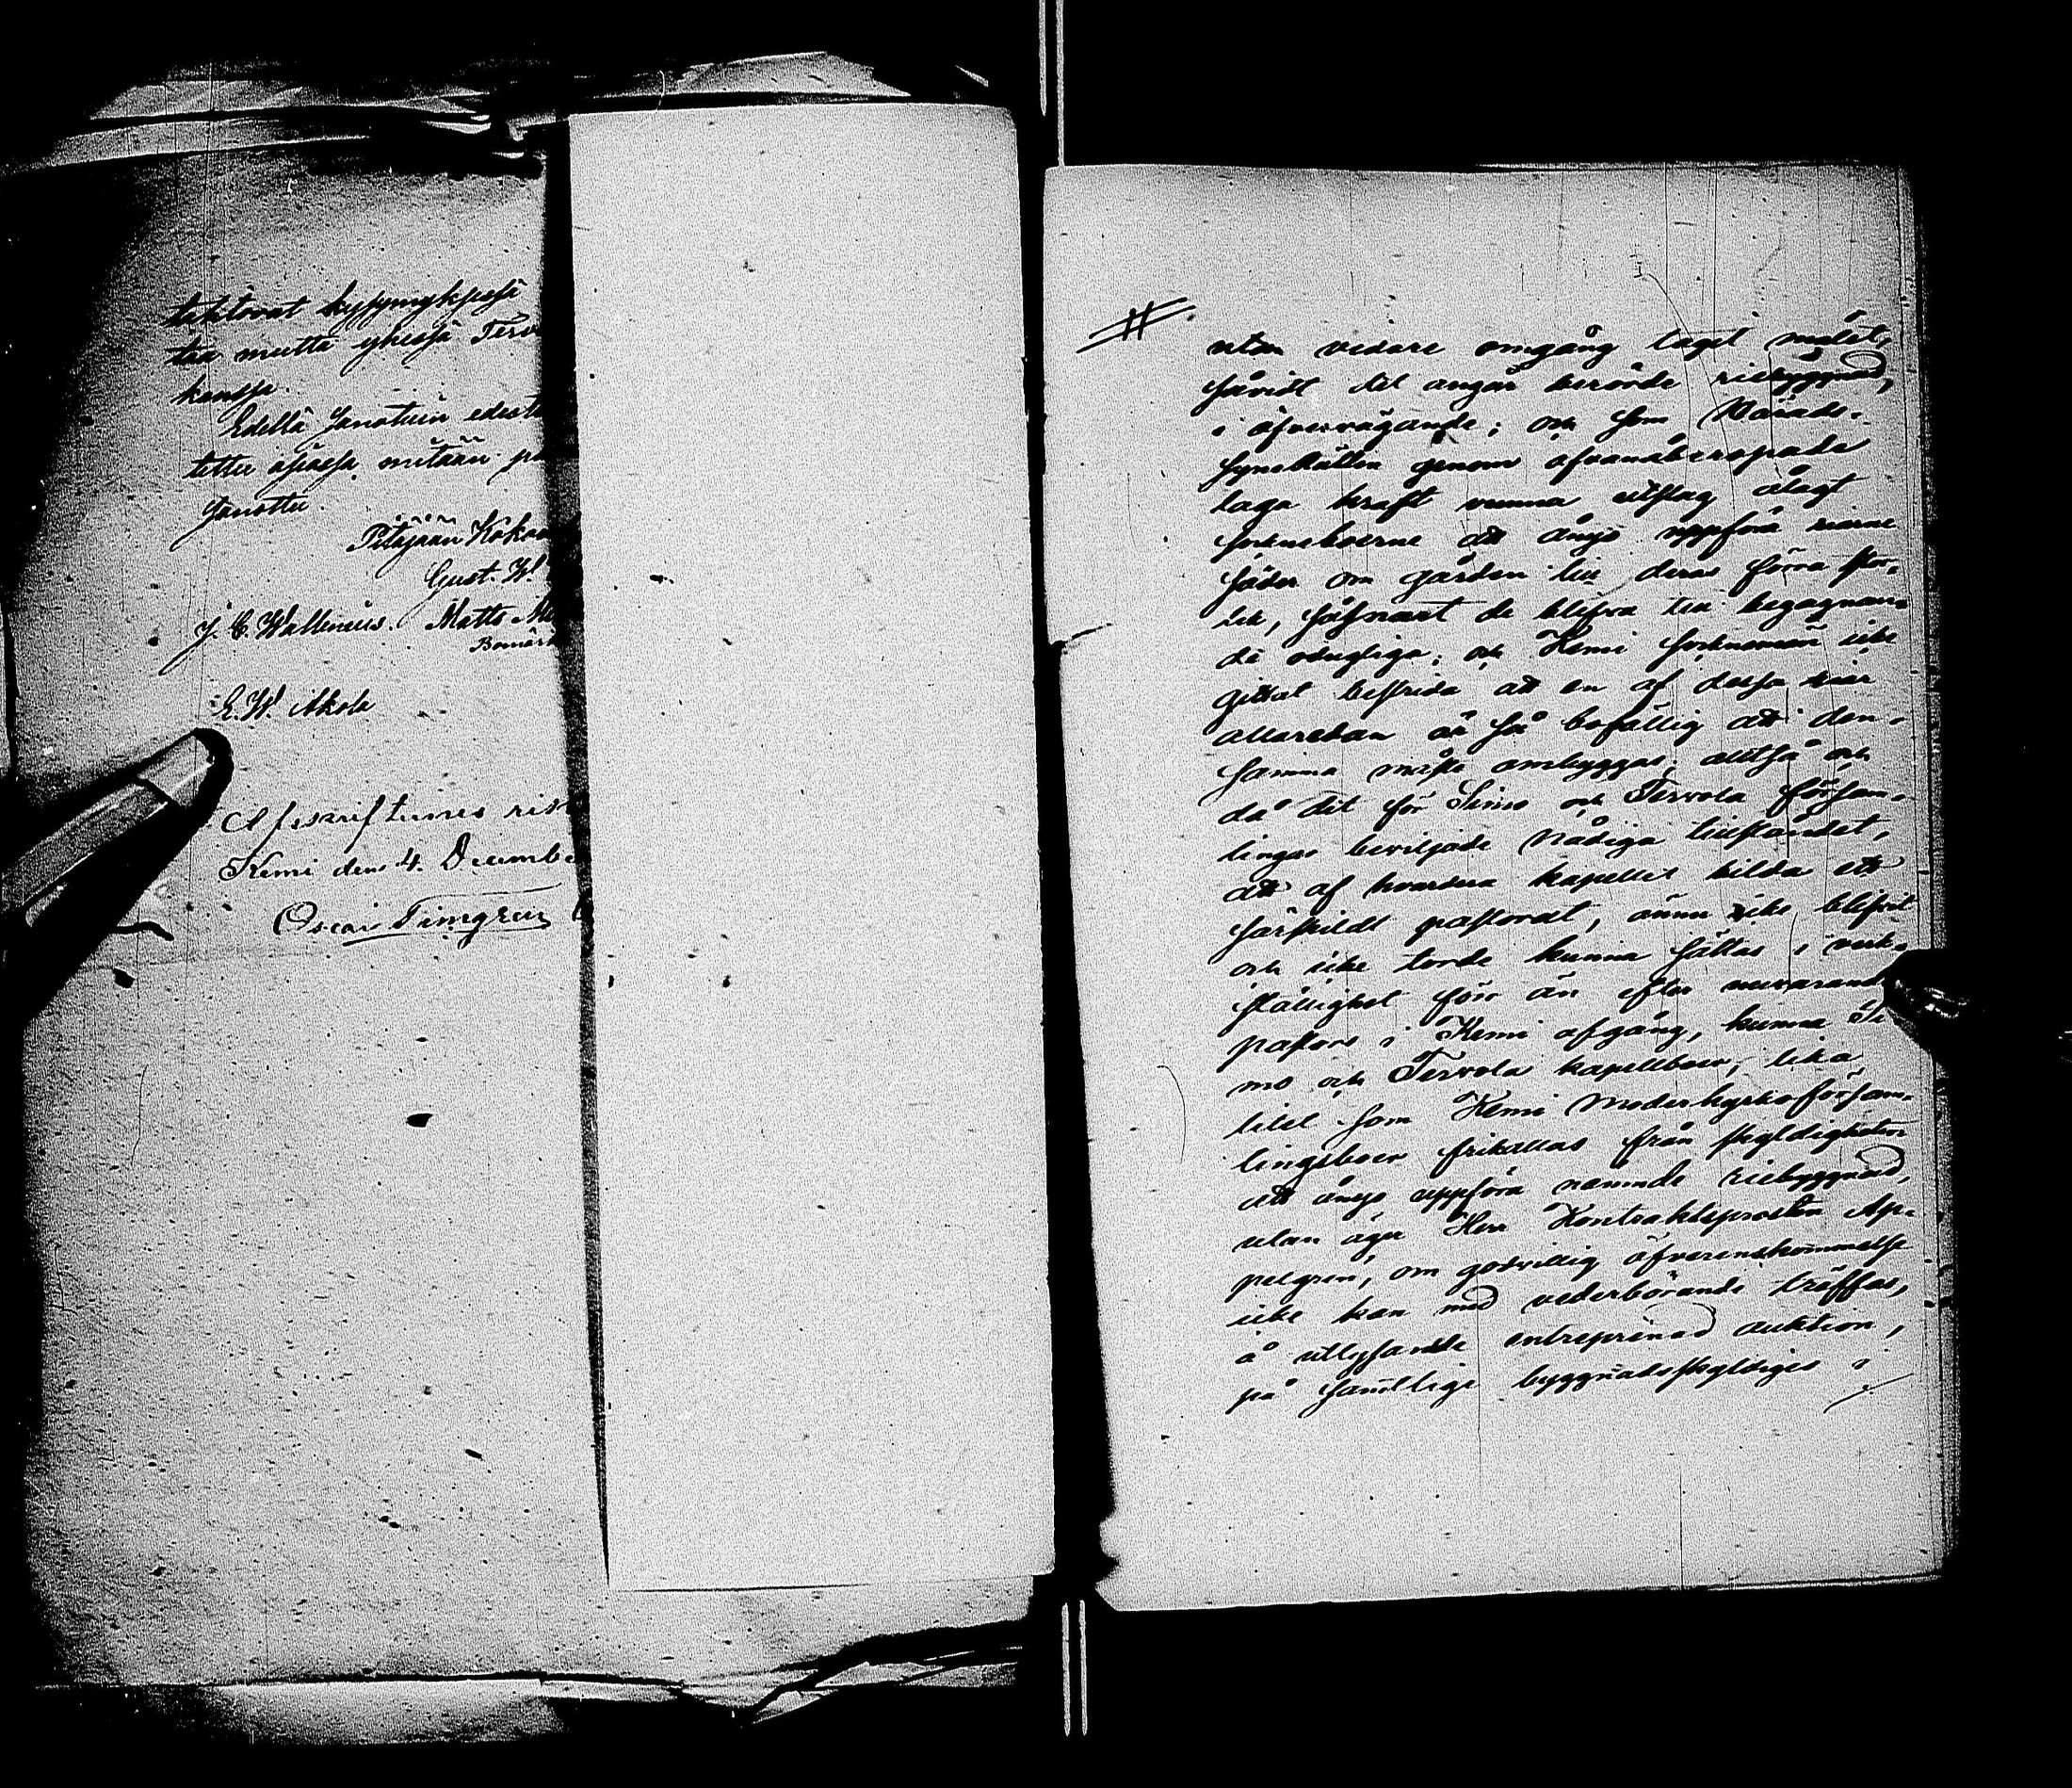 tehtävät kysymyksessä
tra mutta yhessä Terv
kanssa.
Edellä sanotuin edest
tettu asiassa mitään pä
sanottu.
Pitäjään Kokou
Gust. W.
J. C. Wallenius. Matts M
Bomärk
E. W. Akola
Afskriftenes rik
Kemi den 4. Decembe
Oscar Timgren
utan vidare omgång tagit målet,
såvidt det angår berörde riebyggnad,
i öfvervägande; och som Härads-
synerätten genom ofvanåberopade
laga kraft vunna utslag ålagt
sockneboerne att ånyo uppföra riorne
söder om gården till deras förra stor-
lek, såsnart de blefvo till begagnan-
de oduglige; och Kemi sockneman icke
gittat bestrida att en af dessa rior
allaredan är så bofällig att den-
samma måste ombyggas; alltså och
då det för Simo och Tervola försam-
lingar beviljade Nådiga tillståndet,
att af hvardera kapellet bilda ett
särskildt pastorat, ännu icke blifvit
och icke torde kunna sättas i verk-
ställighet förr än efter nuvarande
pastors i Kemi afgång, kunna Si-
mo och Tervola kapellboer, lika
litet som Kemi Moderkyrkoförsam-
lingsboer frikallas från skyldigheten
att ånyo uppföra nämnde riebyggnad,
utan äger Herr Kontraktsprosten Ap-
pelgren, om godvillig öfverenskommelse
icke kan med vederbörande träffas,
å utlysande entreprenad auktion,
på samtlige byggnadsskyldiges i